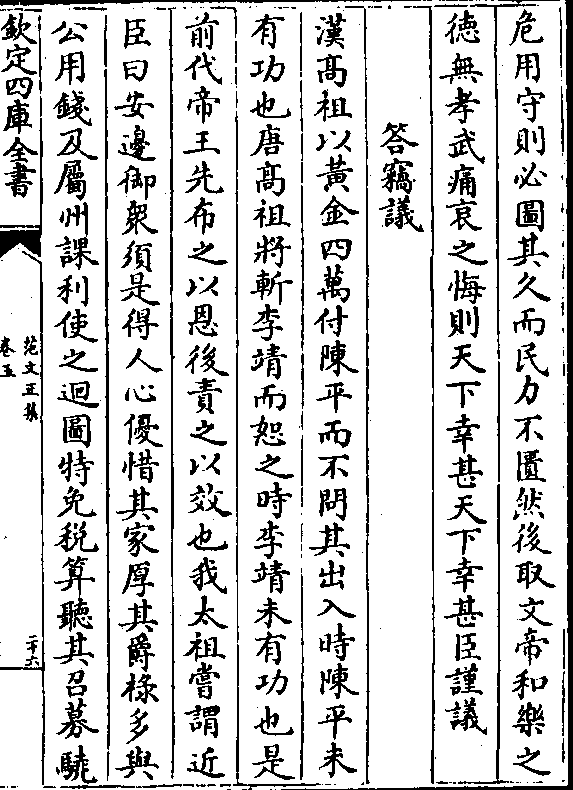 危用守則必圖其久而民力不匱然後取文帝和樂之
德無孝武痛哀之悔則天下幸甚天下幸甚臣謹議
答竊議
漢髙祖以黃金四萬付陳平而不問其出入時陳平未
有功也唐髙祖將斬李靖而恕之時李靖未有功也是
前代帝王先布之以恩後責之以效也我太祖嘗謂近
臣曰安邊御衆須是得人心優惜其家厚其爵祿多與
公用錢及屬州課利使之迴圖特免稅算聽其召募驍
欽定四庫全書
范文正集
卷五
二十六